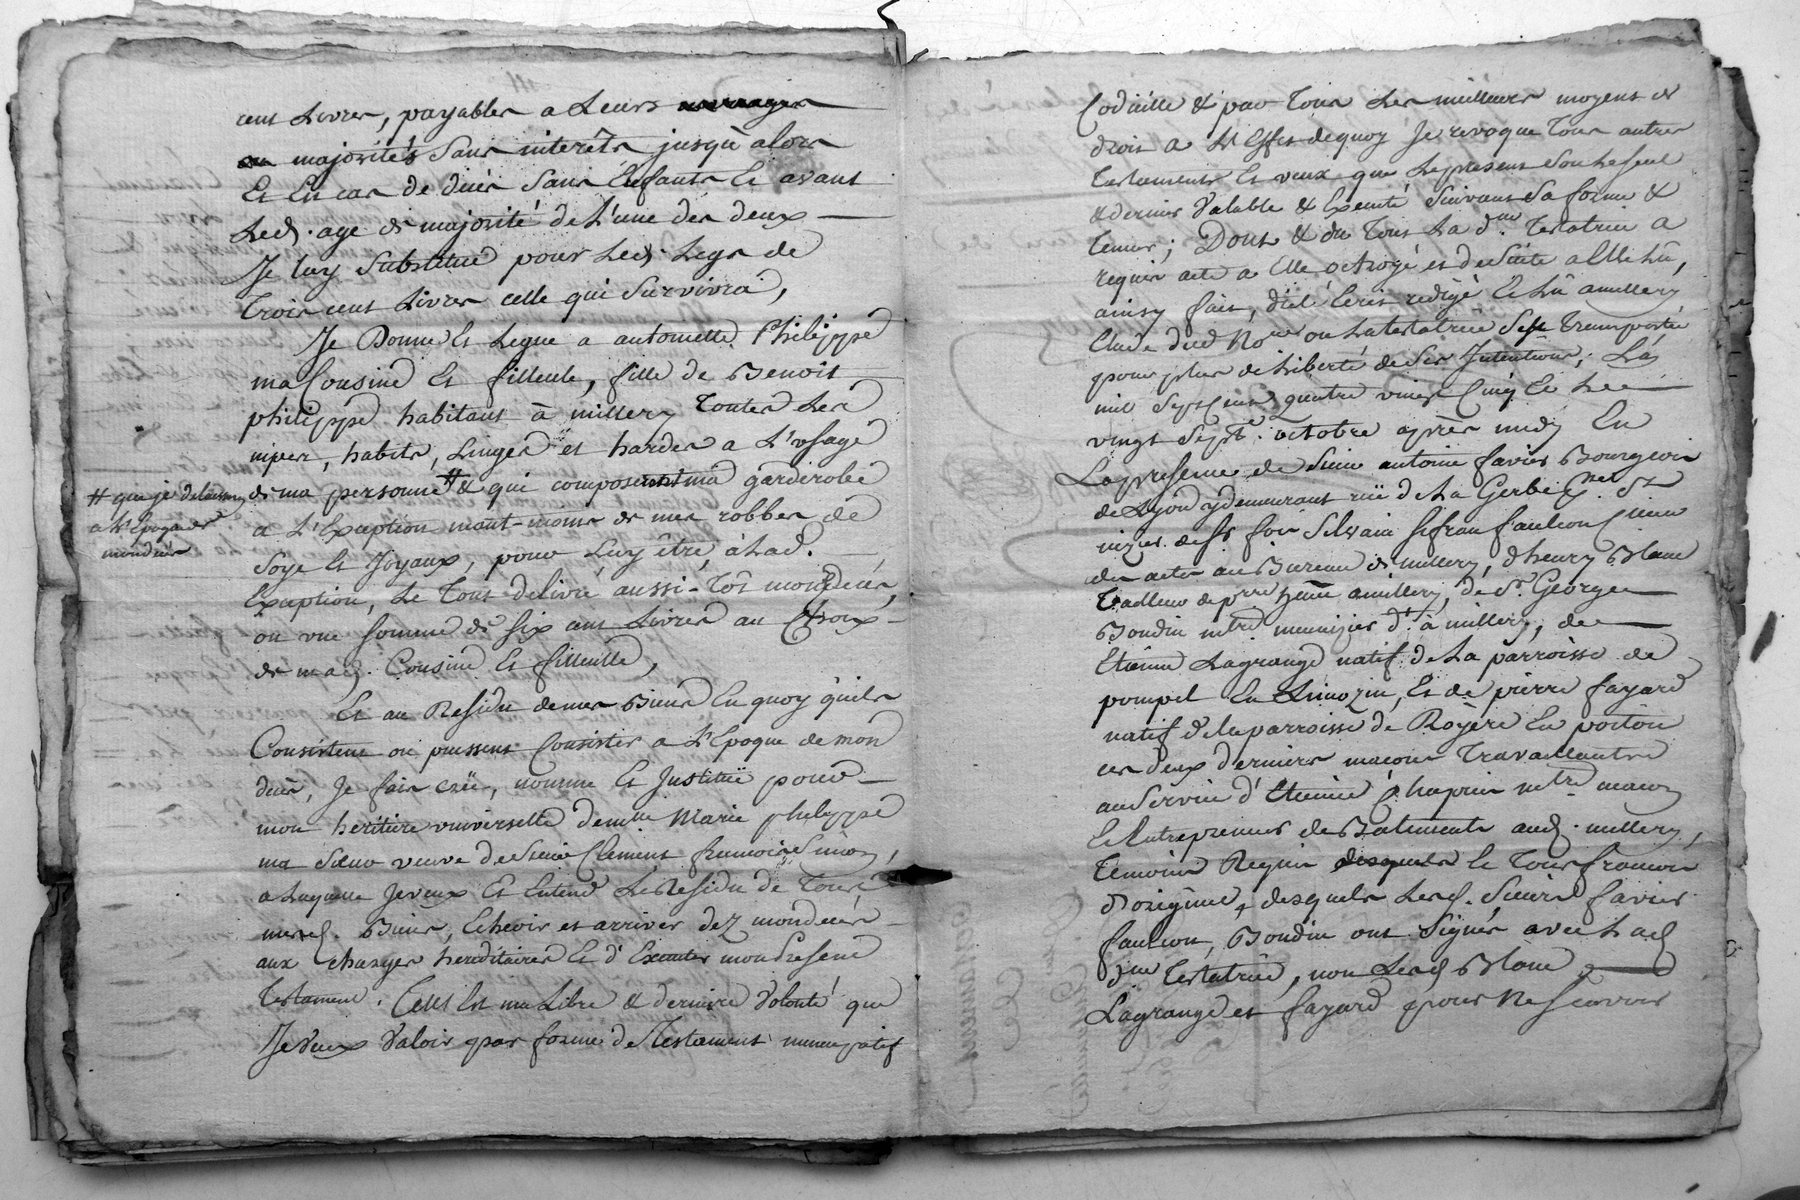 cent Livres, payables a Leurs
majorités sans interêts jusqu'à alors
Et En cas de décès sans Enfants Et avant
Led. age de majorité de L'une des deux
Je luy substitue pour Led. Legs de
trois cent Livres celle qui survivra,
Je Donne Et Legue a antoinette Philippe
ma Cousine Et filleule, fille de Benoit
philippe habitant à millery toutes Les
nipes, habits, Linges et hardes a L'usage
de ma personne # & qui composent ma garderobe
# que je delaisseray
a L'Epoque de
mon décès
a L'Exception moint-moins de mes robbes de
soye Et Joyaux, pour Luy être, à Lad.
Exception, Le tout delivré aussi-tôt mon décès,
ou une somme de six cent Livres au Choix
de mad. Cousine Et filleulle,
Et au Residu de mes Biens En quoy qu'ils
Consistent ou puissent Consister a L'Epoque de mon
décès, Je fais créé, nomme Et Justitue pour
mon heritiere universelle demlle Marie philippe
ma sœur veuve de sieur Clement françois Simon,
a Laquelle Je veux Et Entend Le Residu de tous
mesd. Biens, Echeoir et arriver dez mon décès
aux charges hereditaires Et d'Executer mon Present
testament. Telle Est ma Libre & derniere Volonté que
Je Veux Valoir par forme de Testament nuncupatif
Codicille & par tous Les meilleurs moyens de
droit a L'Effet de quoy Je revoque tous autres
testaments Et veux que Le present soit Le seul
& dernier Valable & Executé suivant sa forme &
teneur; Dont & du tout La d. me testatrice a
requis acte a Elle octroyé et de suite a Elle Lû,
ainsy fait, dicté Ecrit redigé Et Lû a millery
Etude dud Nore ou La testatrice s'est transportée
pour plus de Liberté de ses Intentions; L'an
mil sept cent quatre vingt Cinq Et Le
vingt sept octobre après midy En
La presence de sieur antoine favier Bourgeois
de Lyon y demeurant rüe de La Gerbe St
nizier de sr silvain faulcon
des actes au Bureau de millery, d'henry Blanc
tailleur de pierre a millery, de Sr George
Boudin mtre meunizier dt à millery, de
Etienne Lagrange natif de La parroisse de
pompel En Limozin, Et de pierre fayard
natif de la parroisse de Royere En poitou
ces deux derniers macons travaillants
au service d'Etienne Chaprier mtre macon
Et Entrepreneur de Batiments aud. millery,
temoins Requis Et tous francois
d'origine, desquels Lesd. sieurs favier
faulcon, Boudin ont signés avec Lad
dme Testatrice, non Lesd Blanc
Lagrange et fayard pour Ne scavoir